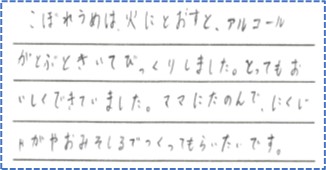 こぼれうめは、火にとおすと、アルコール
がとぶときいてびっくりしました。とってもお
いしくできていました。ママにたのんで、にくじ
ゃがやおみそしるでつくってもらいたいです。